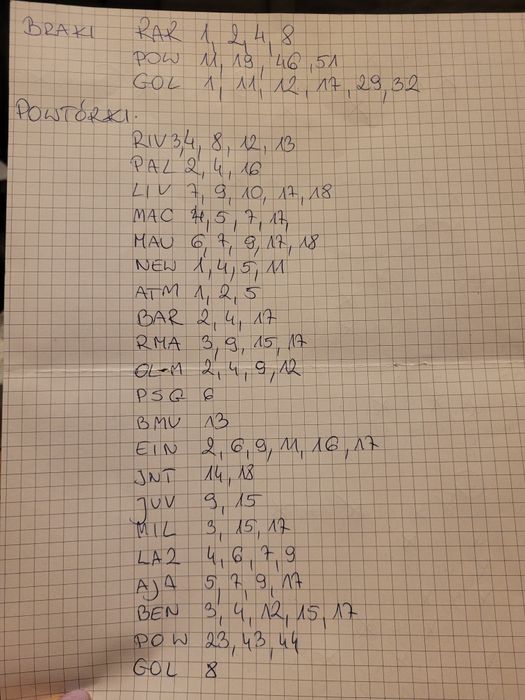 BRAKI RAR 1, 2, 4, 8
POW 11, 19, 46, 51
GOL 1, 11, 12, 17, 29, 32
POWTÓRKI.
RIV 3, 4, 8, 12, 13
PAL 2, 4, 16
LIV 7, 9, 10, 17, 18
MAC 4, 5, 7, 17,
MAU 6, 7, 9, 17, 18
NEW 1, 4, 5, 11
ATM 1, 2, 5
BAR 2, 4, 17
RMA 3, 9, 15, 17
OL-M 2, 4, 9, 12
PSG 6
BMU 13
EIN 2, 6, 9, 11, 16, 17
INT 14, 18
JUV 9, 15
MIL 3, 15, 17
LAZ 4, 6, 7, 9
AJA 5, 7, 9, 17
BEN 3, 4, 12, 15, 17
POW 23, 43, 44
GOL 8